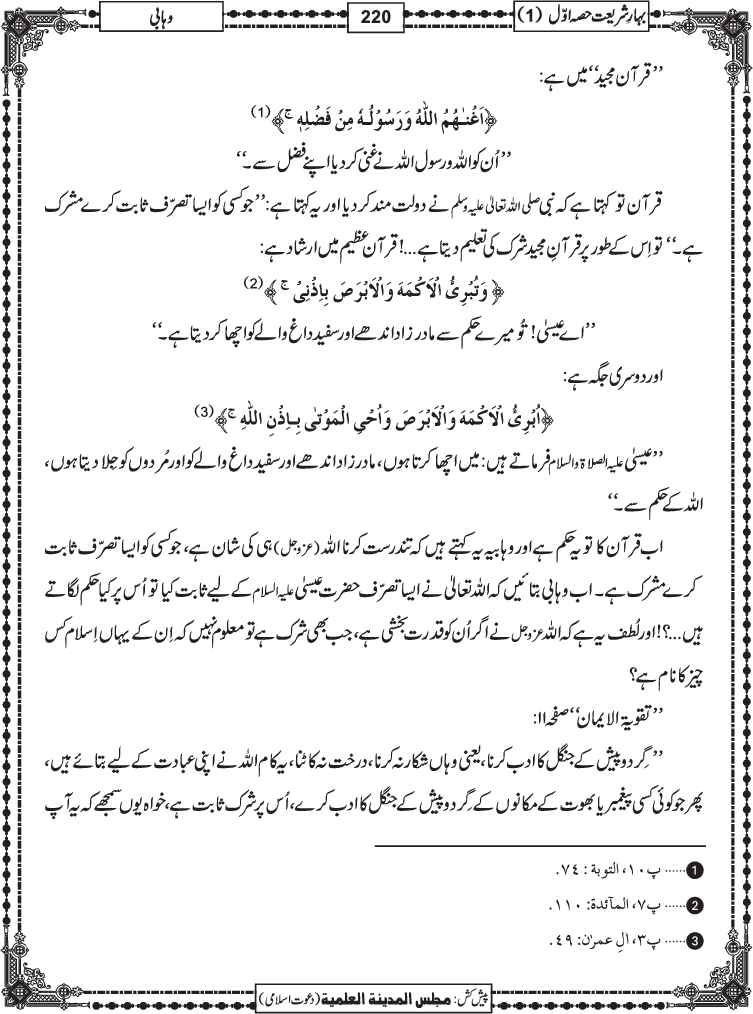 بہارِ شریعت حصہ اوّل (1)
220
وہابی
’’قرآن مجید‘‘ میں ہے:
﴿اَغْنٰـهُمُ اللّٰهُ وَرَسُوْلُـهٗ مِنْ فَضْلِهٖ ۚ﴾ (1)
’’اُن کو اللہ و رسول اللہ نے غنی کر دیا اپنے فضل سے۔‘‘
قرآن تو کہتا ہے کہ نبی صلی اللہ تعالیٰ علیہ وسلم نے دولت مند کر دیا اور یہ کہتا ہے: ’’جو کسی کو ایسا تصرّف ثابت کرے مشرک
ہے۔‘‘ تو اِس کے طور پر قرآنِ مجید شرک کی تعلیم دیتا ہے...! قرآن عظیم میں ارشاد ہے:
﴿ وَتُبْرِئُ الْاَكْمَهَ وَالْاَبْرَصَ بِاِذْنِیْ ۚ ﴾ (2)
’’اے عیسیٰ! تُو میرے حکم سے مادر زاد اندھے اور سفید داغ والے کو اچھا کر دیتا ہے۔‘‘
اور دوسری جگہ ہے:
﴿اُبْرِئُ الْاَكْمَهَ وَالْاَبْرَصَ وَاُحْیِ الْمَوْتٰی بِـاِذْنِ اللّٰهِ ۚ﴾ (3)
’’عیسیٰ علیہ الصلاۃ والسلام فرماتے ہیں: میں اچھا کرتا ہوں، مادر زاد اندھے اور سفید داغ والے کو اور مُردوں کو جِلا دیتا ہوں،
اللہ کے حکم سے۔‘‘
اب قرآن کا تو یہ حکم ہے اور وہابیہ یہ کہتے ہیں کہ تندرست کرنا اللہ (عزوجل) ہی کی شان ہے، جو کسی کو ایسا تصرّف ثابت
کرے مشرک ہے۔ اب وہابی بتائیں کہ اللہ تعالیٰ نے ایسا تصرّف حضرت عیسیٰ علیہ السلام کے لیے ثابت کیا تو اُس پر کیا حکم لگاتے
ہیں...؟! اور لُطف یہ ہے کہ اللہ عزوجل نے اگر اُن کو قدرت بخشی ہے، جب بھی شرک ہے تو معلوم نہیں کہ اِن کے یہاں اِسلام کس
چیز کا نام ہے؟
’’تقویۃ الایمان‘‘ صفحہ ۱۱:
’’گِرد و پیش کے جنگل کا ادب کرنا، یعنی وہاں شکار نہ کرنا، درخت نہ کاٹنا، یہ کام اللہ نے اپنی عبادت کے لیے بتائے ہیں،
پھر جو کوئی کسی پیغمبر یا بھوت کے مکانوں کے گِرد و پیش کے جنگل کا ادب کرے، اُس پر شرک ثابت ہے، خواہ یوں سمجھے کہ یہ آپ
1 ...... پ۱۰، التوبة : ۷٤.
2 ...... پ۷، المآئدة: ۱۱۰.
3 ...... پ۳، اٰلِ عمرٰن: ٤۹.
پیش کش: مجلس المدينة العلمية (دعوت اسلامی)